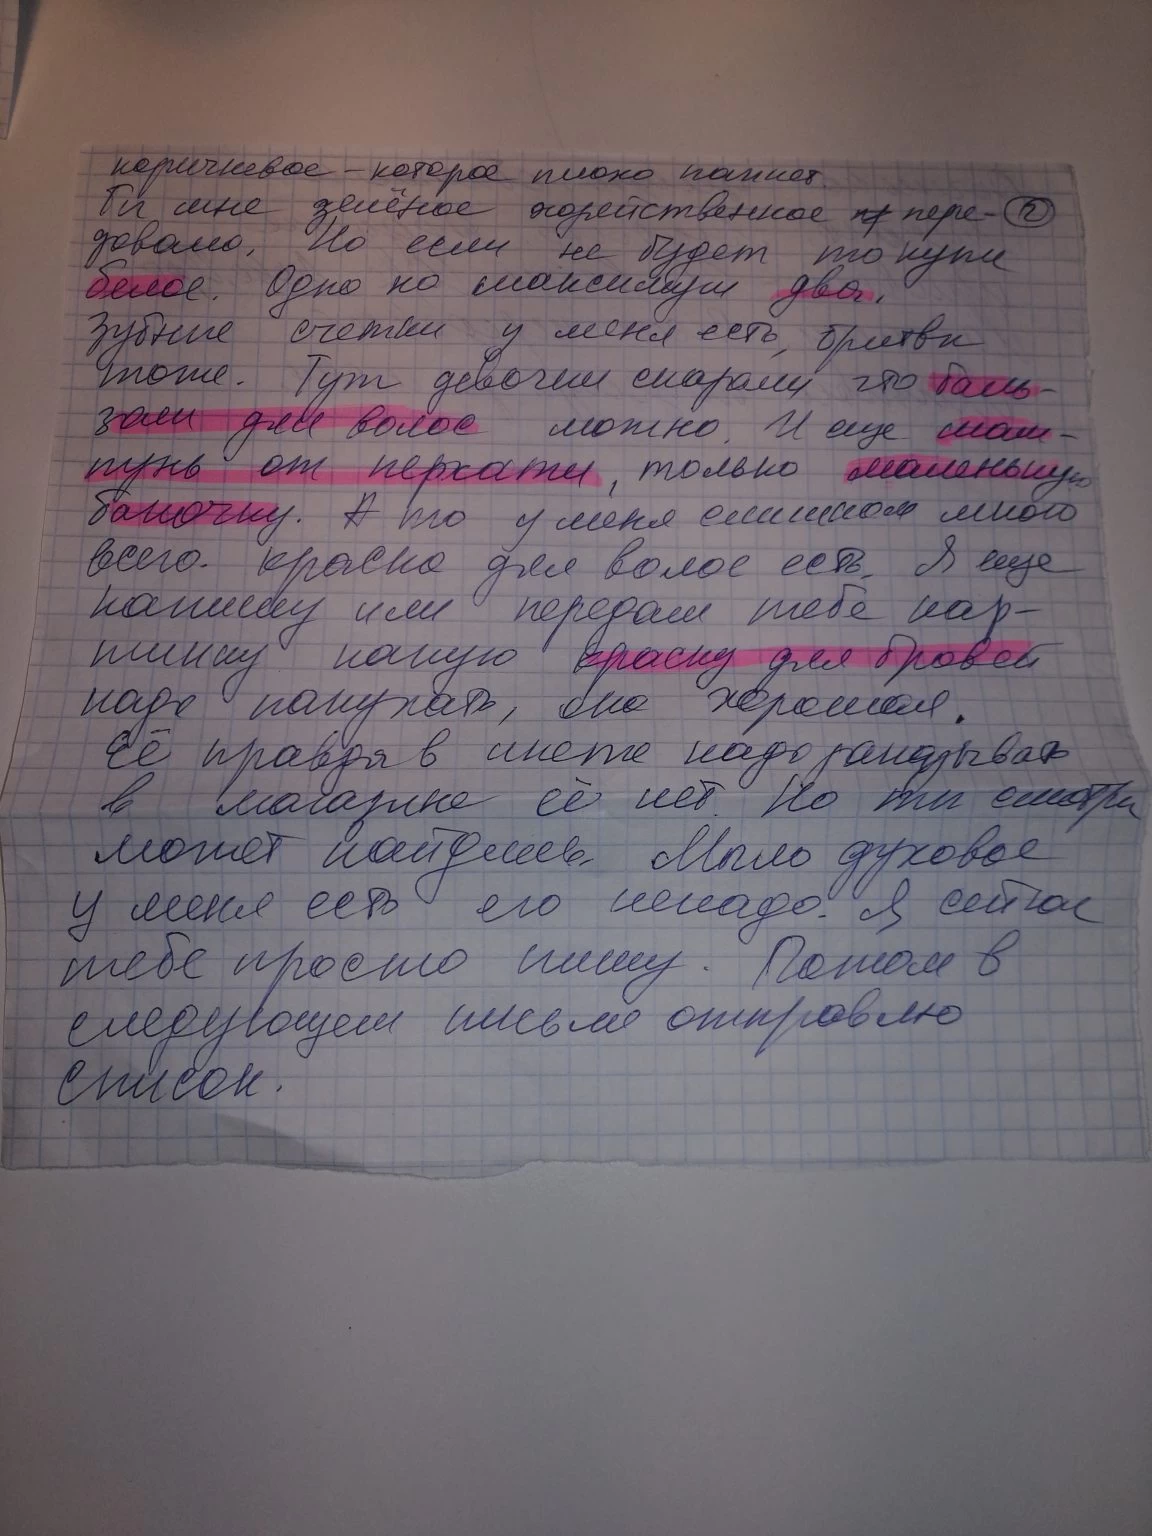 коричневое - которое плохо пахнет
Ты мне зелёное хозрейственное пере- 2
довала. Но если не будет то купи
белое. Одно но максимум два.
Зубные счетки у меня есть, бритвы
тоже. Тут девочки сказали что баль-
зам для волос можно. И еще шам-
пунь от перхати, только маленькую
баночку. А то у меня слишком много
всего. Краска для волос есть. Я еще
напишу или передам тебе кар-
тинку какую краску для бровей
надо покупать, она хорошая.
Её правда в инете надо заказывать
в магазине её нет. Но ты смотри
может найдешь. Мыло духовое
у меня есть его ненадо. Я сейчас
тебе просто пишу. Потом в
следующем письме отправлю
список.